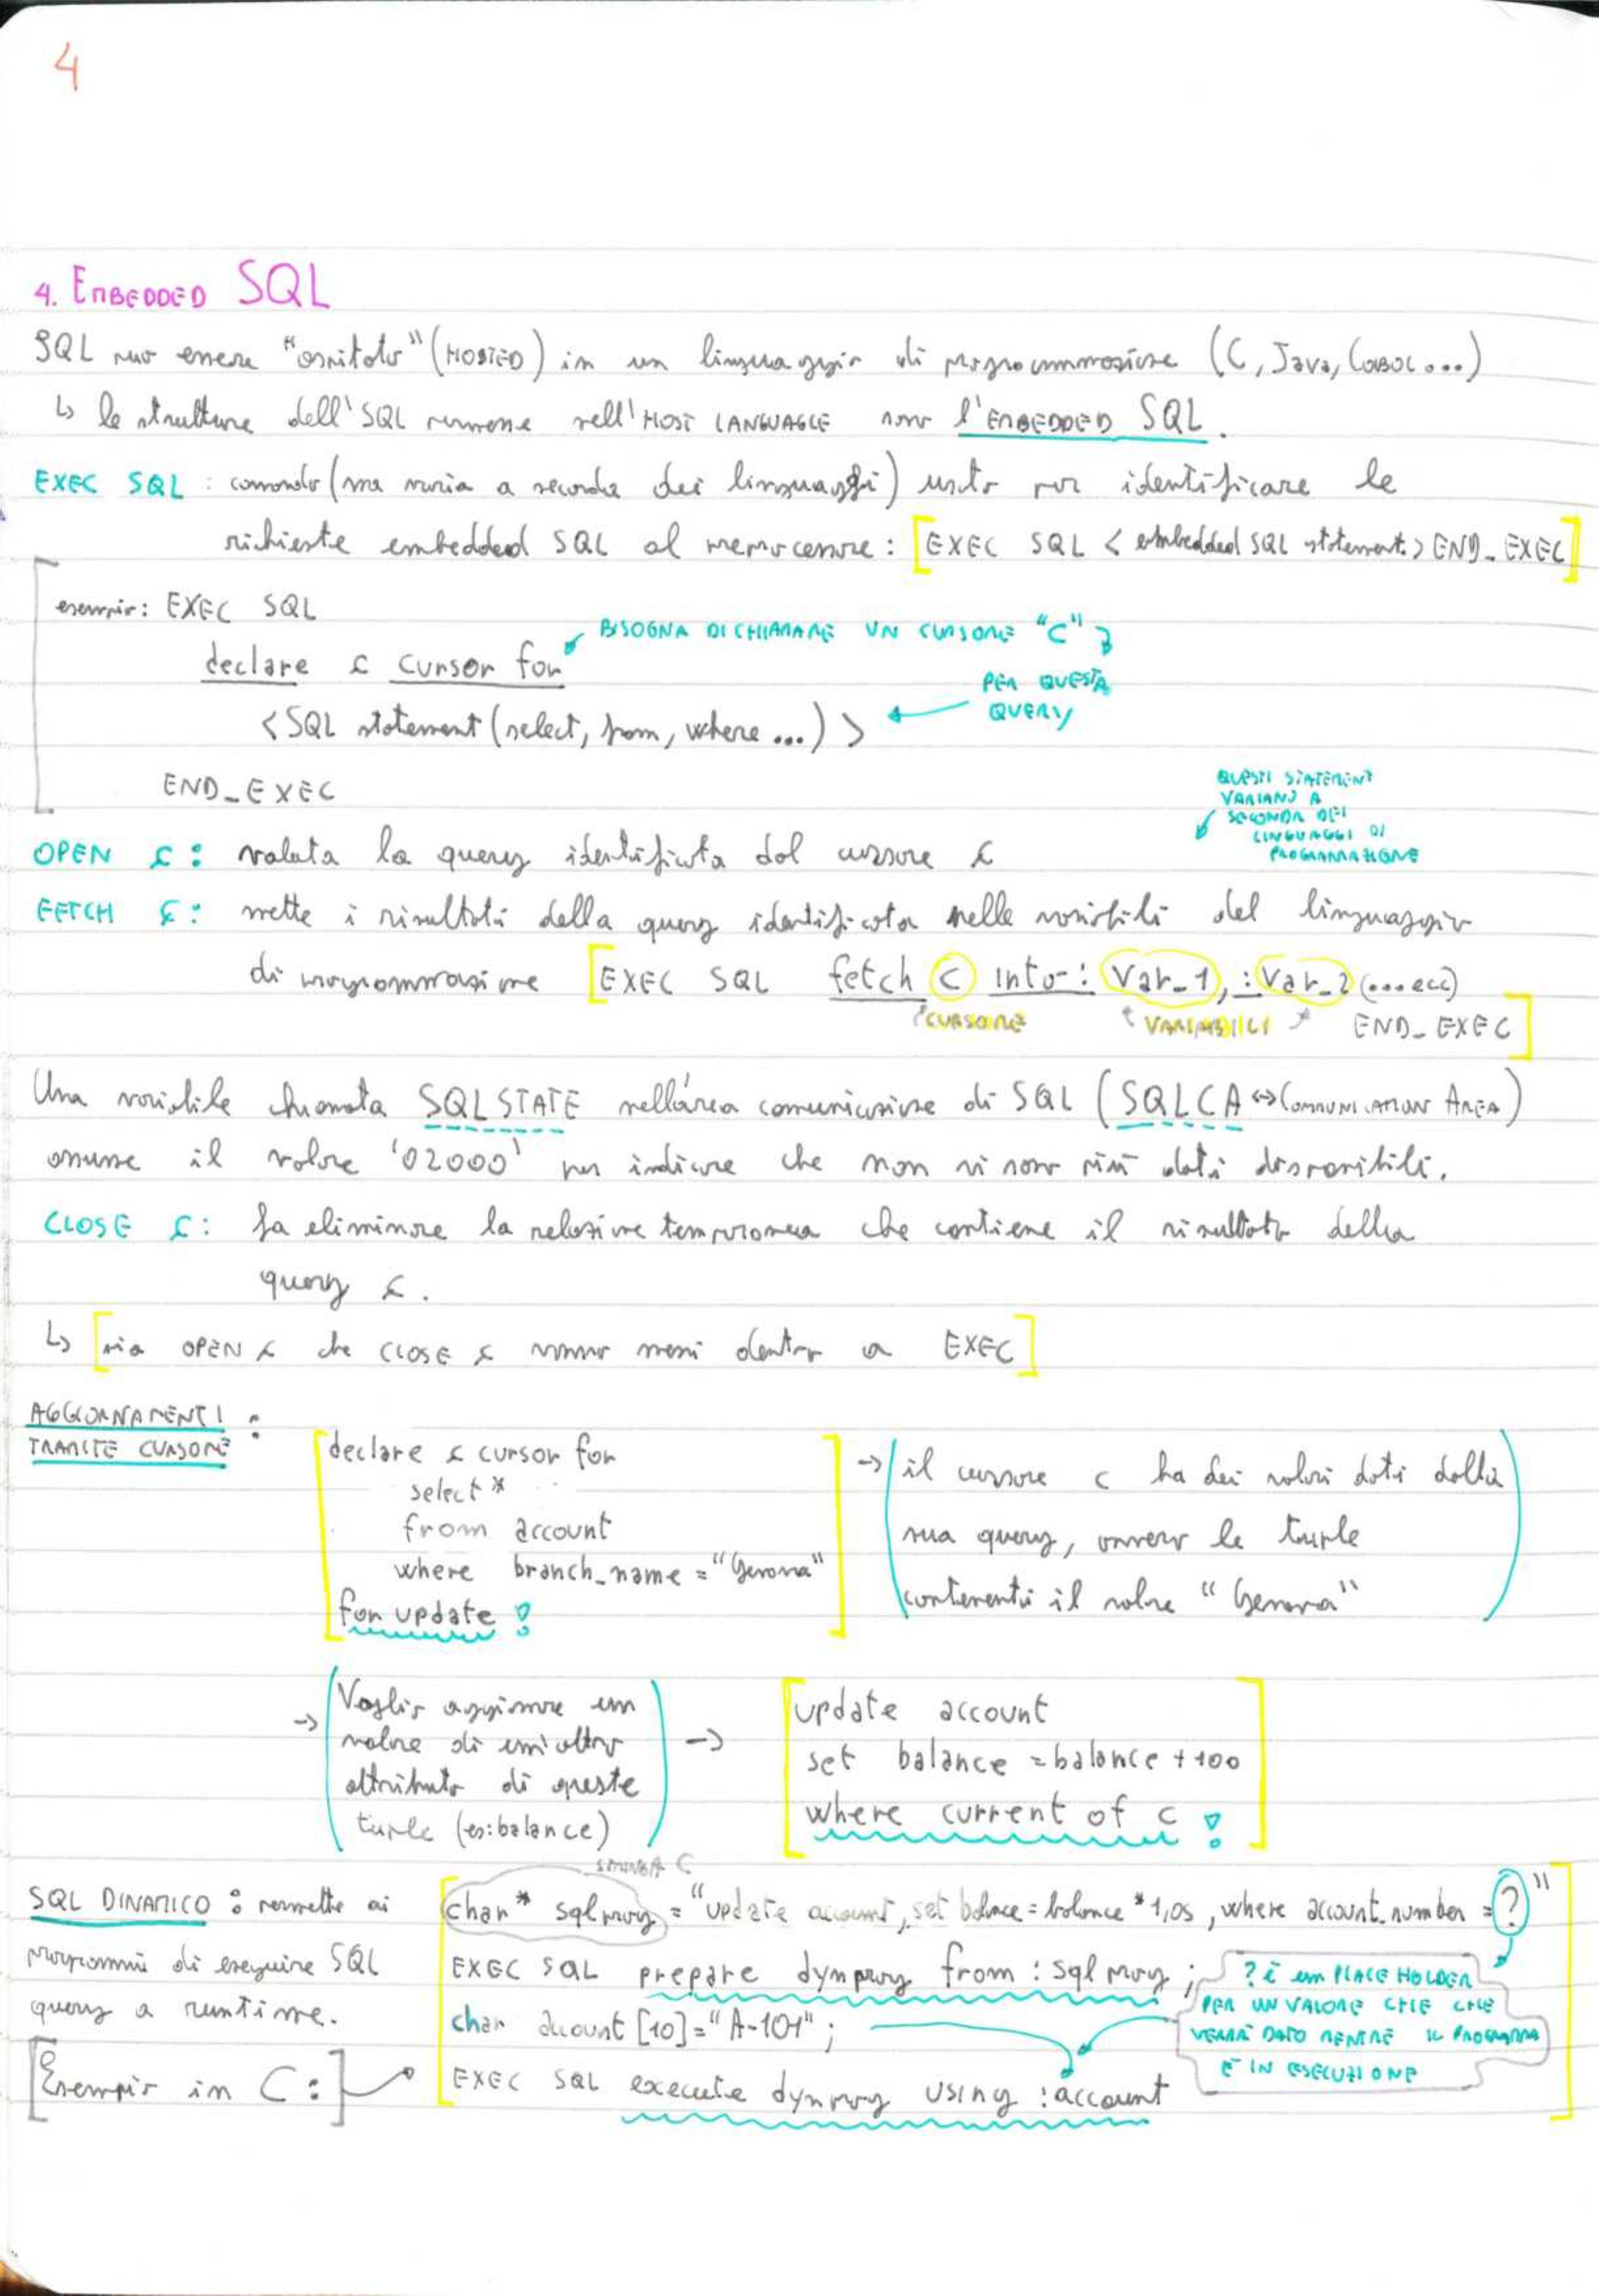 4
4. EMBEDDED SQL
SQL può essere "ospitato" (HOSTED) in un linguaggio di programmazione (C, Java, COBOL...)
↳ le strutture dell'SQL permesse nell'HOST LANGUAGE sono l'EMBEDDED SQL.
EXEC SQL : comando (ma varia a seconda dei linguaggi) usato per identificare le
richieste embedded SQL al preprocessore : [EXEC SQL < embedded SQL statement > END_EXEC]
esempio: EXEC SQL
BISOGNA DICHIARARE UN CURSORE "C"
declare c cursor for
PER QUESTA
QUERY
<SQL statement (select, from, where ...) >
END_EXEC
QUESTI STATEMENT
VARIANO A
SECONDA DEI
LINGUAGGI DI
PROGRAMMAZIONE
OPEN c : valuta la query identificata dal cursore c
FETCH c : mette i risultati della query identificata nelle variabili del linguaggio
di programmazione [EXEC SQL fetch c into : Var_1, : Var_2 (...ecc)
CURSORE VARIABILI END_EXEC]
Una variabile chiamata SQLSTATE nell'area comunicazione di SQL (SQLCA ↔ COMMUNICATION AREA)
assume il valore '02000' per indicare che non vi sono più dati disponibili.
CLOSE c : fa eliminare la relazione temporanea che contiene il risultato della
query c.
↳ [sia OPEN c che CLOSE c vanno messi dentro a EXEC]
AGGIORNAMENTI
TRAMITE CURSORE :
[declare c cursor for
select *
from account
where branch_name = "Genova"
for update !]
→ (il cursore c ha dei valori dati dalla
sua query, ovvero le tuple
contenenti il valore "Genova")
→ (Voglio aggiornare un
valore di un'altro
attributo di queste
tuple (es: balance)) →
[update account
set balance = balance + 100
where current of c !]
STRINGA C
SQL DINAMICO : permette ai
programmi di eseguire SQL
query a runtime.
[Esempio in C :]
[char* sqlprog = "update account, set balance = balance * 1,05, where account_number = ?"
EXEC SQL prepare dynprog from : sqlprog ;
char account [10] = "A-101" ;
EXEC SQL execute dynprog using : account]
? è un PLACE HOLDER
PER UN VALORE CHE CHE
VERRÀ DATO MENTRE IL PROGRAMMA
È IN ESECUZIONE